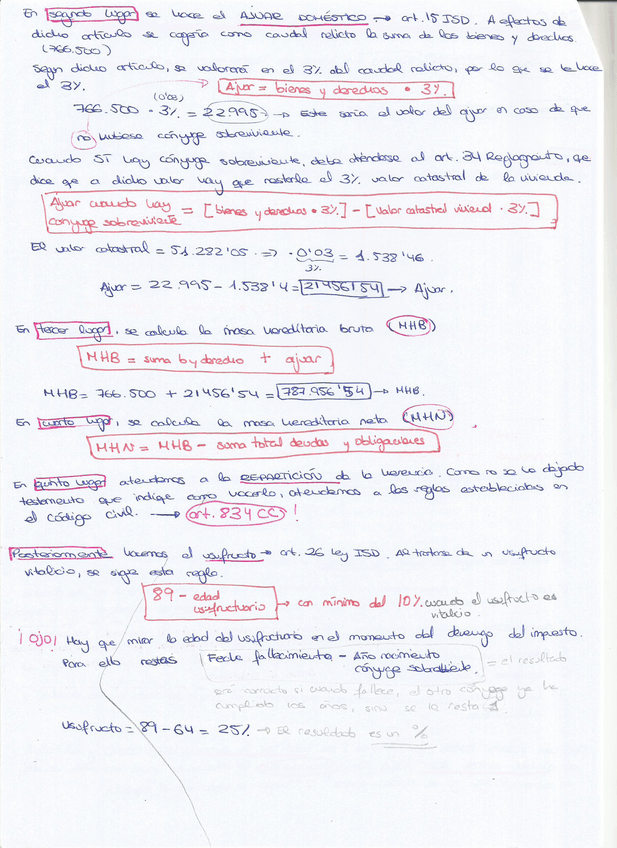 En segundo lugar se hace el AJUAR DOMÉSTICO → art. 15 ISD. A efectos de
dicho artículo se cogería como caudal relicto la suma de los bienes y derechos
(766.500)
Según dicho artículo, se valorará en el 3% del caudal relicto, por lo que se le hace
el 3%. Ajuar = bienes y derechos · 3%.
(0'03)
766.500 · 3% = 22.995 → Este sería el valor del ajuar en caso de que
no hubiese cónyuge sobreviviente.
Cuando SÍ hay cónyuge sobreviviente, debe atenderse al art. 34 Reglamento, que
dice que a dicho valor hay que restarle el 3% valor catastral de la vivienda.
Ajuar cuando hay
cónyuge sobreviviente = [bienes y derechos · 3%] - [valor catastral vivienda · 3%]
El valor catastral = 51.282'05 => · 0'03 = 1.538'46.
3%
Ajuar = 22.995 - 1.538'4 = 21456'54 → Ajuar.
En tercer lugar, se calcula la masa hereditaria bruta (MHB)
MHB = suma b y derecho + ajuar
MHB = 766.500 + 21456'54 = 787.956'54 → MHB.
En cuarto lugar, se calcula la masa hereditaria neta (MHN)
MHN = MHB - suma total deudas y obligaciones
En quinto lugar atendemos a la REPARTICIÓN de la herencia. Como no se ha dejado
testamento que indique como hacerlo, atendemos a las reglas establecidas en
el código civil. → art. 834 CC!
Posteriormente hacemos el usufructo → art. 26 ley ISD. Al tratarse de un usufructo
vitalicio, se sigue esta regla.
89 - edad
usufructuario → con mínimo del 10% cuando el usufructo es
vitalicio.
¡OJO! Hay que mirar la edad del usufructuario en el momento del devengo del impuesto.
Para ello restas Fecha fallecimiento - Año nacimiento
cónyuge sobreviviente. = el resultado
será correcto si cuando fallece, el otro cónyuge ya ha
cumplido los años, sino se le resta 1
Usufructo = 89 - 64 = 25% → El resultado es un %